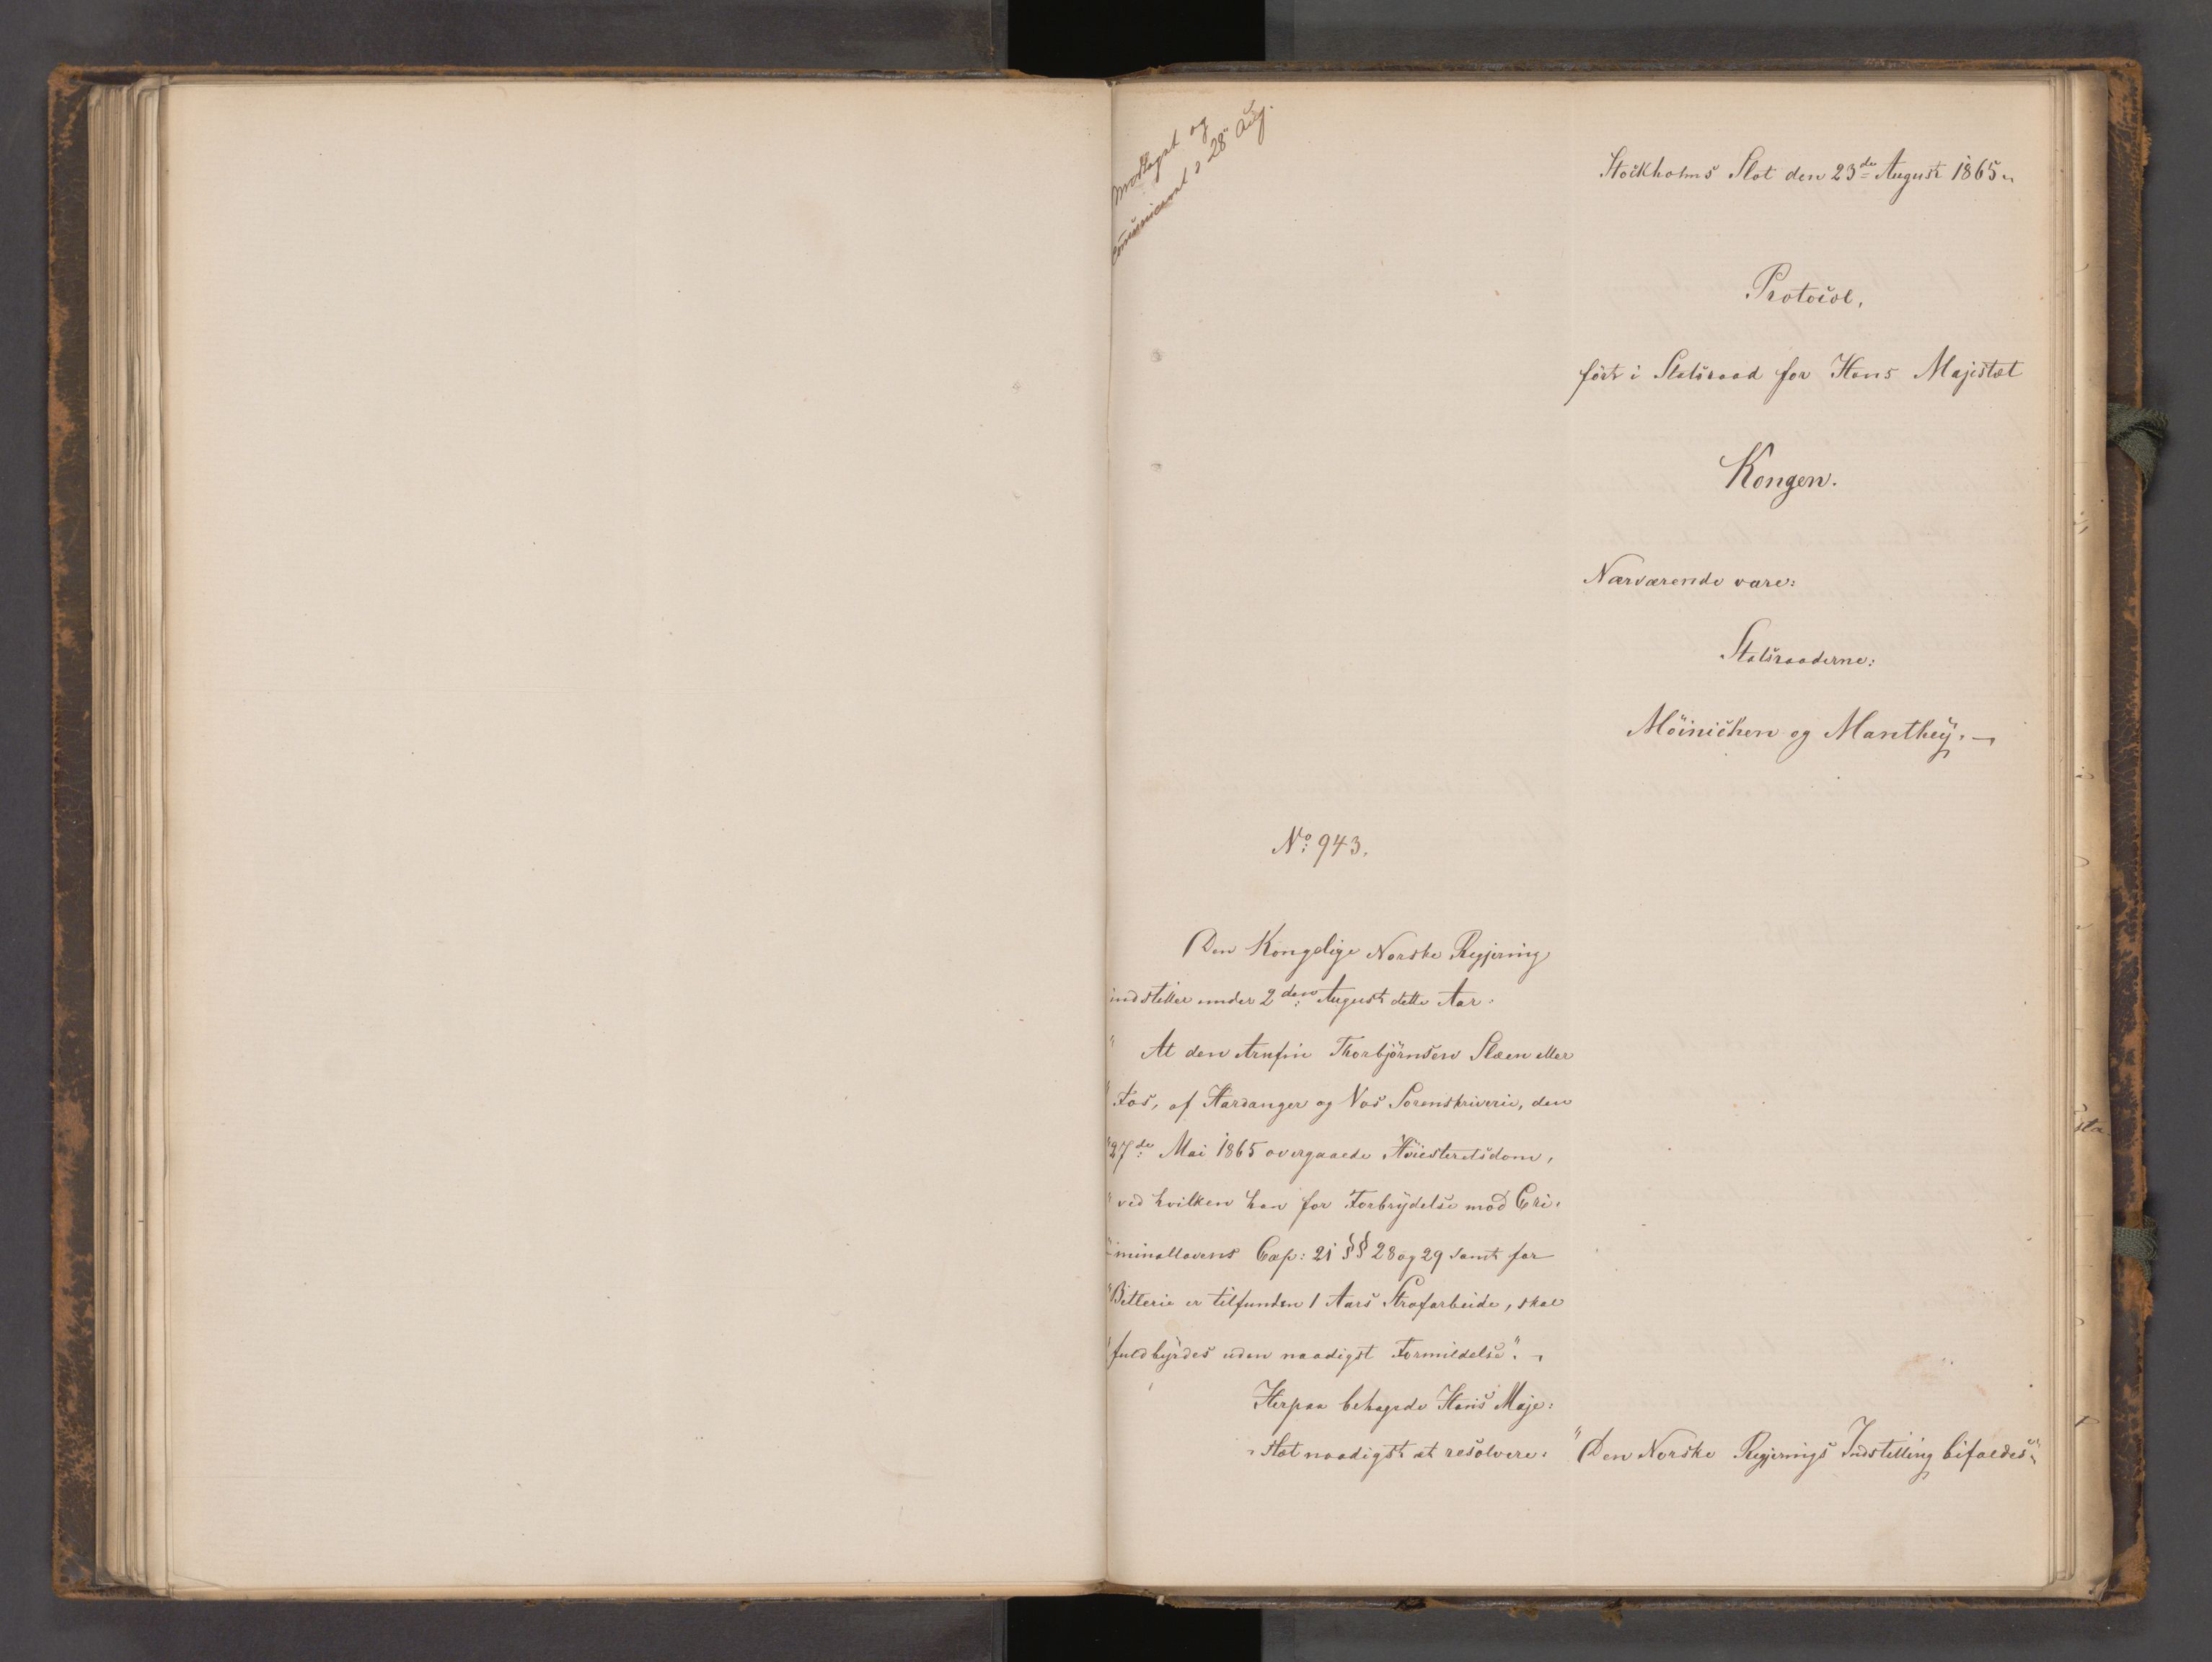 Modtaget og
communiceret d 28 Aug.
Stockholms Slot den 23de August 1865.
Protocol,
ført i Statsraad for Hans Majestæt
Kongen.
Nærværende vare:
Statsraaderne:
Möinichen og Manthey.
No: 943.
Den Kongelige Norske Regjering
indstiller under 2den August dette Aar:
"At den Arnfin Thorbjørnsen Slæen eller
"Fos, af Hardanger og Vos Sorenskriverie, den
"27de Mai 1865 overgaaede Höiesteretsdom,
"ved hvilken han for Forbrydelse mod Cri-
"minallovens Cap: 21 §§ 28 og 29 samt for
"Betlerie er tilfunden 1 Aars Strafarbeide, skal
"fuldbyrdes uden naadigst Formildelse".
Herpaa behagede Hans Maje-
stæt naadigst at resolvere: "Den Norske Regjerings Indstilling bifaldes"